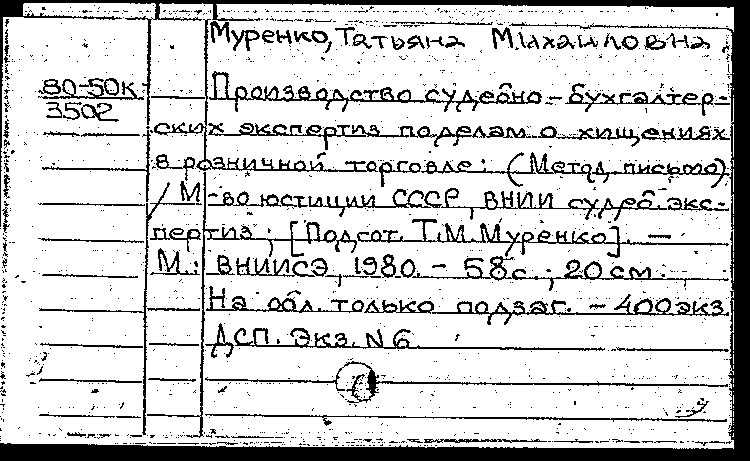 Муренко, Татьяна Михайловна.
80-50к
3502
Производство судебно-бухгалтер-
ских экспертиз по делам о хищениях
в розничной торговле: (Метод. письмо)
/ М-во юстиции СССР, ВНИИ судеб. экс-
пертиз; [Подгот. Т.М. Муренко]. —
М.: ВНИИСЭ, 1980. - 58 с.; 20 см.
На обл. только подзаг. - 400 экз.
ДСП. Экз. N 6.